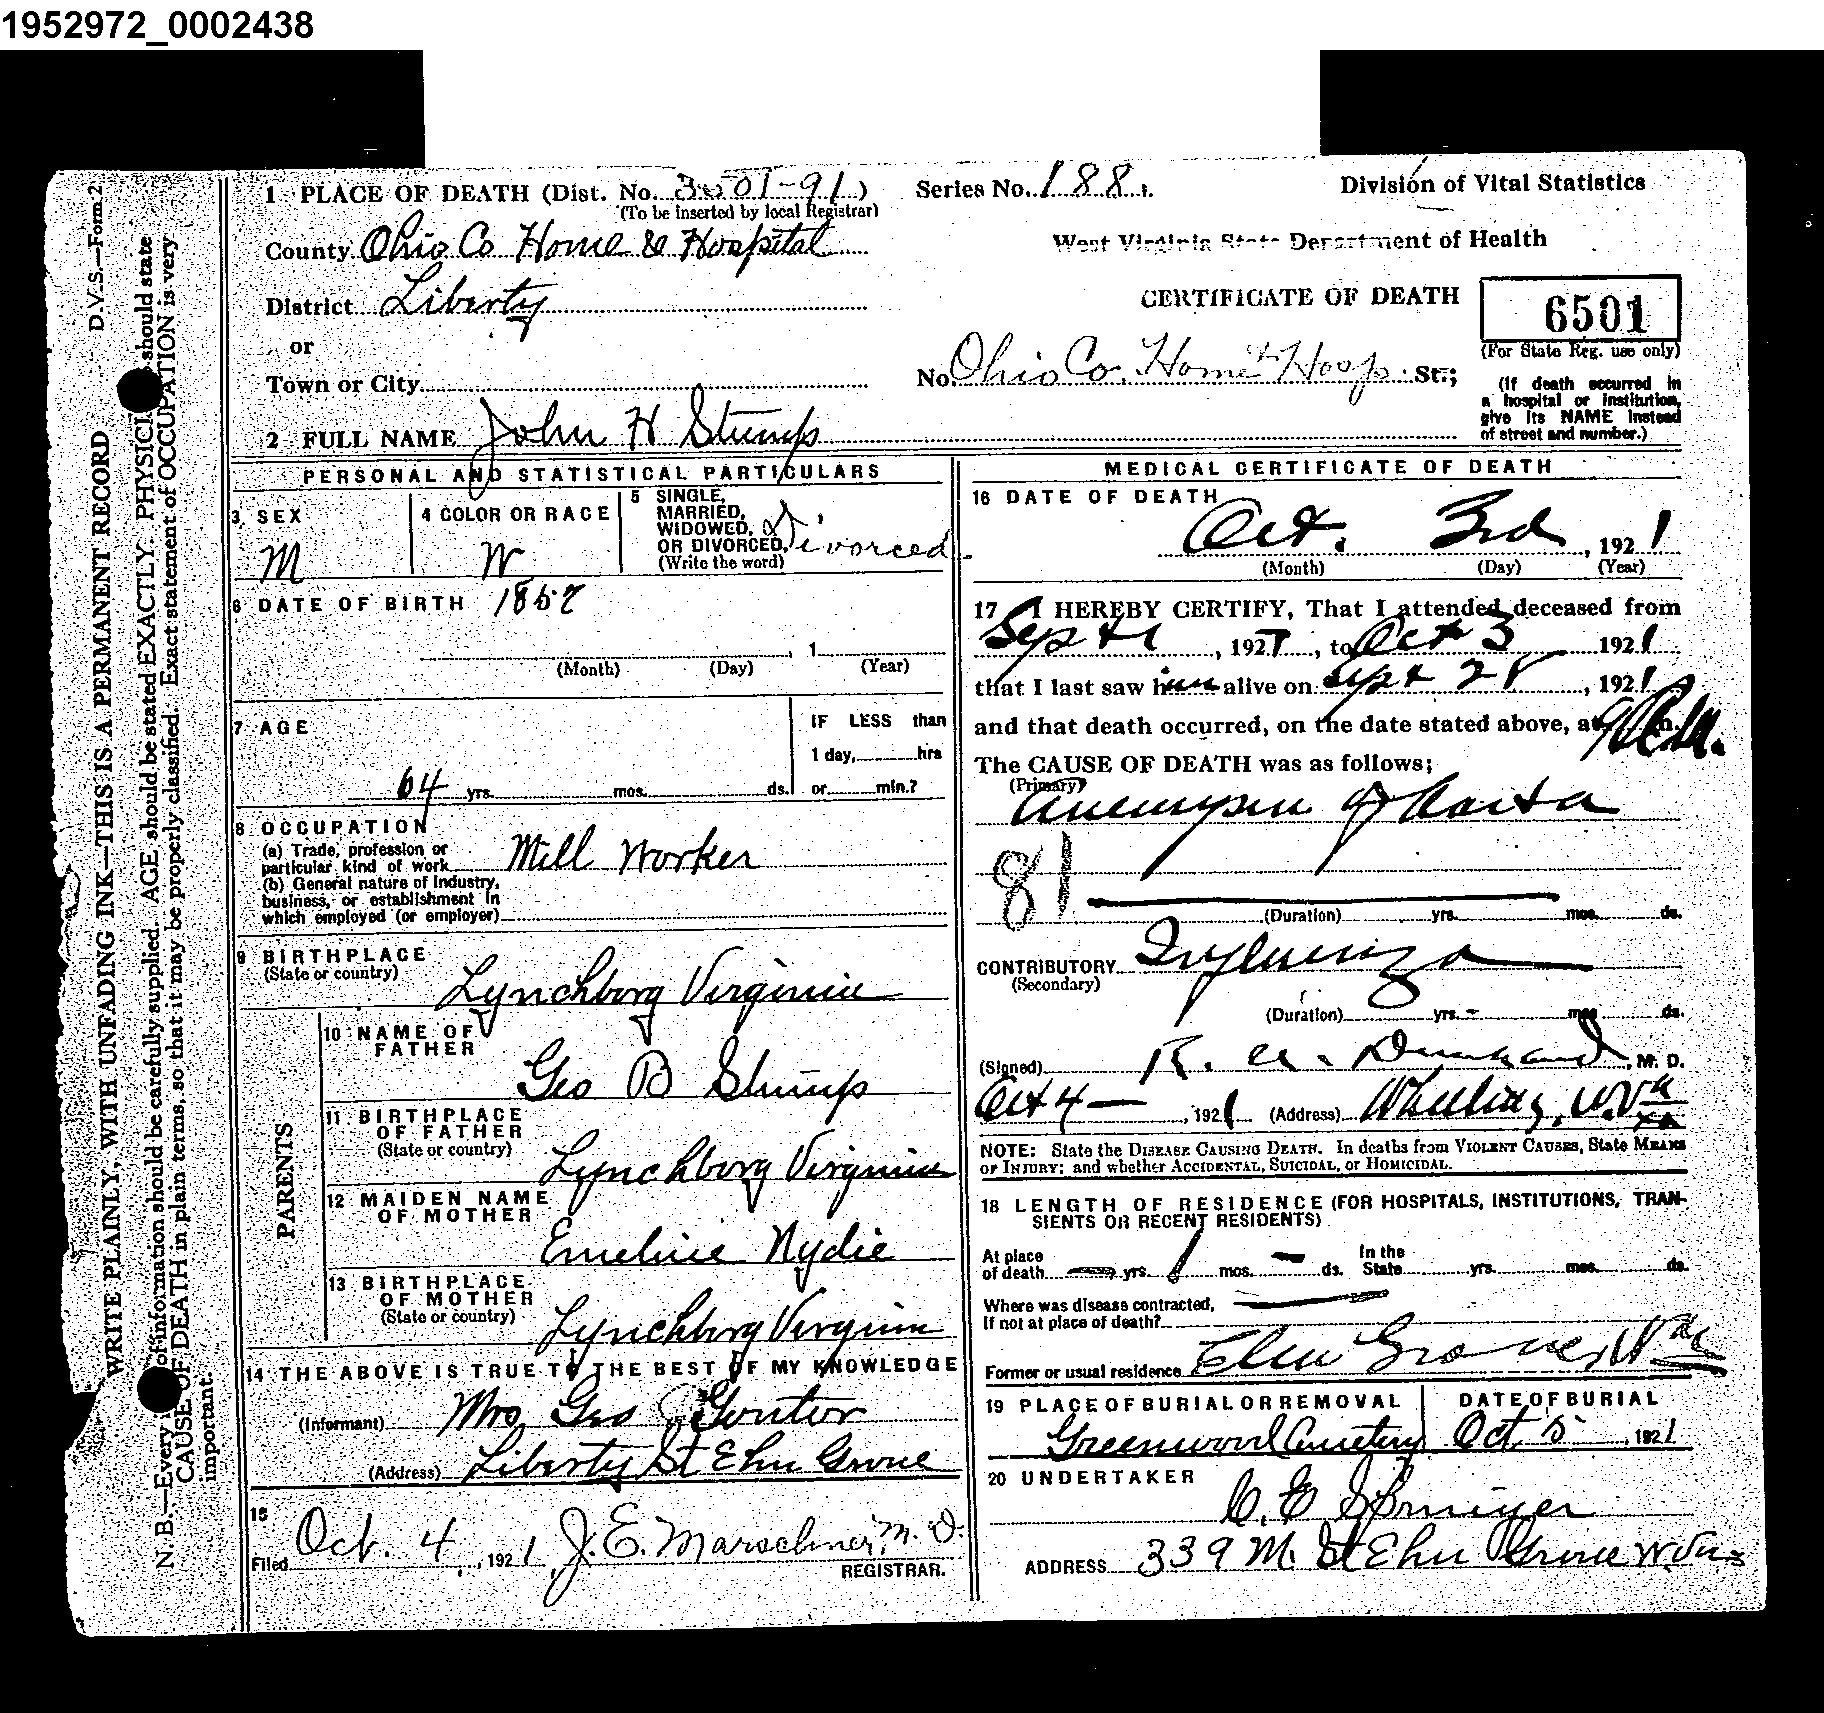 1952972_0002438
D.V.S.—Form 2
WRITE PLAINLY, WITH UNFADING INK—THIS IS A PERMANENT RECORD
N. B.—Every of information should be carefully supplied. AGE should be stated EXACTLY. PHYSICI should state
CAUSE OF DEATH in plain terms, so that it may be properly classified. Exact statement of OCCUPATION is very
important.
1 PLACE OF DEATH (Dist. No. 3501-91)
(To be inserted by local Registrar)
Series No. 188
Division of Vital Statistics
County Ohio Co Home & Hospital
West Virginia State Department of Health
District Liberty
CERTIFICATE OF DEATH
6501
(For State Reg. use only)
or
Town or City
No. Ohio Co. Home & Hosp. St.;
(If death occurred in
a hospital or institution,
give its NAME instead
of street and number.)
2 FULL NAME John H Stump
PERSONAL AND STATISTICAL PARTICULARS
3 SEX
M
4 COLOR OR RACE
W
5 SINGLE,
MARRIED,
WIDOWED,
OR DIVORCED,
(Write the word)
Divorced
6 DATE OF BIRTH 1857
, 1
(Month) (Day) (Year)
7 AGE
64 yrs. mos. ds.
IF LESS than
1 day, hrs
or min.?
8 OCCUPATION
(a) Trade, profession or
particular kind of work Mill Worker
(b) General nature of Industry,
business, or establishment in
which employed (or employer)
9 BIRTHPLACE
(State or country)
Lynchborg Virginia
PARENTS
10 NAME OF
FATHER
Geo B Stump
11 BIRTHPLACE
OF FATHER
(State or country)
Lynchborg Virginia
12 MAIDEN NAME
OF MOTHER
Emeline Nydie
13 BIRTHPLACE
OF MOTHER
(State or country)
Lynchborg Virginia
14 THE ABOVE IS TRUE TO THE BEST OF MY KNOWLEDGE
(Informant) Mrs Geo
(Address) Liberty St Elm Grove
15
Filed Oct. 4, 1921 J. E. Marschner, M. D.
REGISTRAR.
MEDICAL CERTIFICATE OF DEATH
16 DATE OF DEATH
Oct. 3rd, 1921
(Month) (Day) (Year)
17 I HEREBY CERTIFY, That I attended deceased from
Sept 1, 1921, to Oct 3 1921
that I last saw him alive on Sept 28, 1921
and that death occurred, on the date stated above, at m.
The CAUSE OF DEATH was as follows;
(Primary)
Aneurysm of Aorta
81
(Duration) yrs. mos. ds.
CONTRIBUTORY Influenza
(Secondary)
(Duration) yrs. mos ds.
(Signed) R. M. D.
Oct 4 — , 1921 (Address) Wheeling, W.Va
NOTE: State the DISEASE CAUSING DEATH. In deaths from VIOLENT CAUSES, State MEANS
OF INJURY; and whether ACCIDENTAL, SUICIDAL, or HOMICIDAL.
18 LENGTH OF RESIDENCE (FOR HOSPITALS, INSTITUTIONS, TRAN-
SIENTS OR RECENT RESIDENTS)
At place
of death — yrs. 1 mos. — ds.
In the
State yrs. mos. ds.
Where was disease contracted,
If not at place of death?
Former or usual residence Elm Grove, W Va
19 PLACE OF BURIAL OR REMOVAL
Greenwood Cemetery
DATE OF BURIAL
Oct 5, 1921
20 UNDERTAKER
C. E.
ADDRESS 339 M. St Elm Grove W. Va